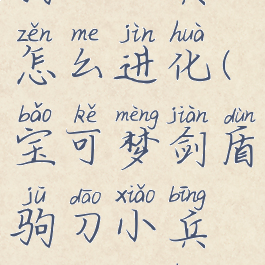 zěn me jìn huà
怎么进化(
bǎo kě mèng jiàn dùn
宝可梦剑盾
jū dāo xiǎo bīng
驹刀小兵